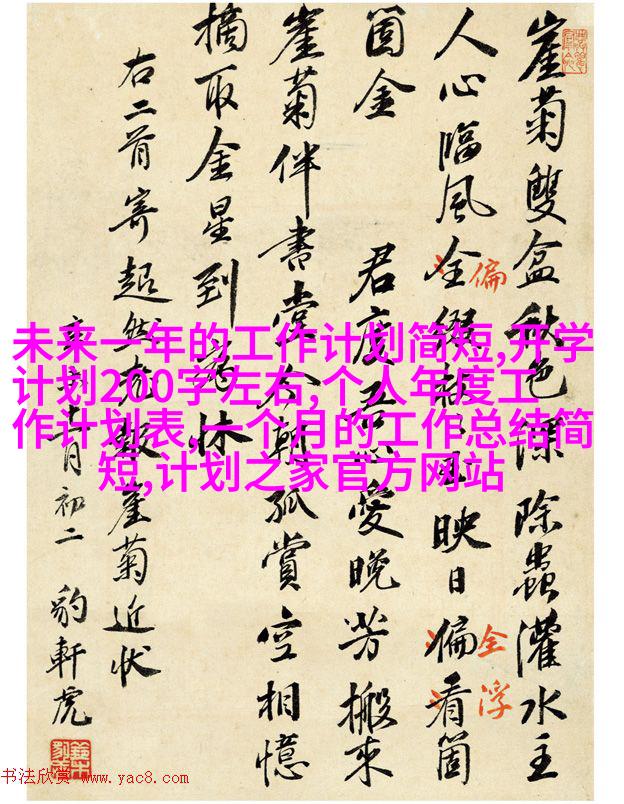 崖菊雙盆秋色深除蟲灌水主
人心臨風全綴映日偏看箇
偏
全浮
箇金
君度愛晚芳搬來
崖菊伴書堂今朝孤賞空相憶
摘取金星到
右二首寄超然崖菊近狀
月初二 豹軒虎
未来一年的工作计划简短,开学
计划200字左右,个人年度工
作计划表,一个月的工作总结简
短,计划之家官方网站
书法欣赏 www.yac8.com